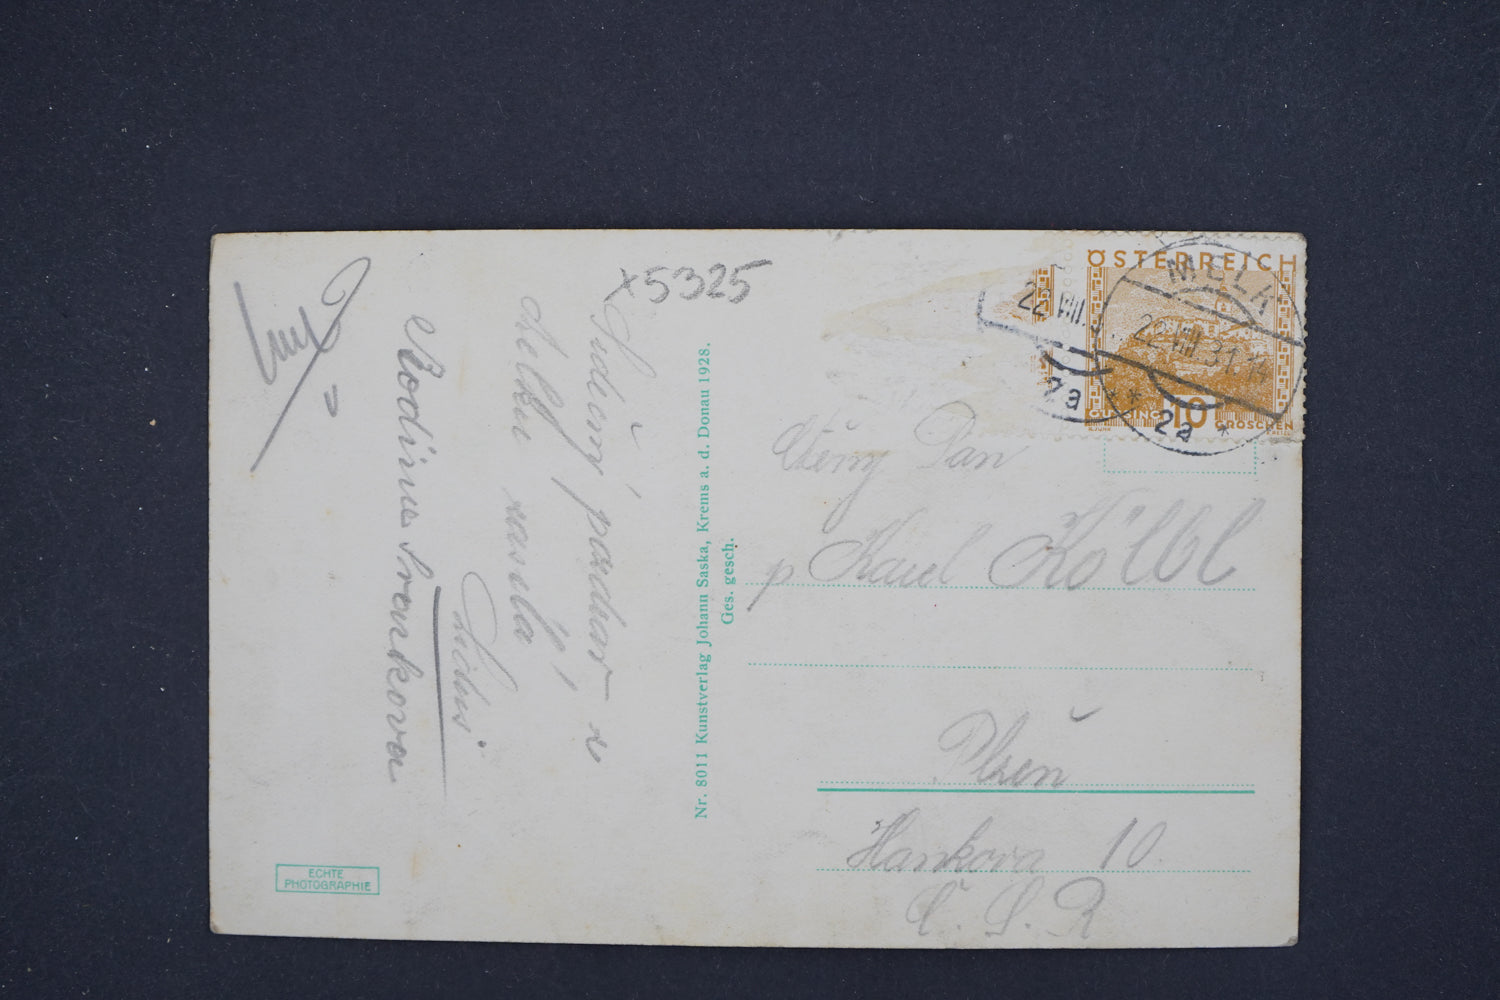 x5325
Srdečný pozdrav z
Melku zasílá
Rodina Svarkova
Nr. 8011 Kunstverlag Johann Saska, Krems a. d. Donau 1928.
Ges. gesch.
ECHTE
PHOTOGRAPHIE
ÖSTERREICH
MELK
22.VIII.31.14
2a
22.VIII.3
2a
GÜSSING 10 GROSCHEN
Ctěný Pan
p Karel Kölbl
Plzeň
Hankova 10
Č. S. R